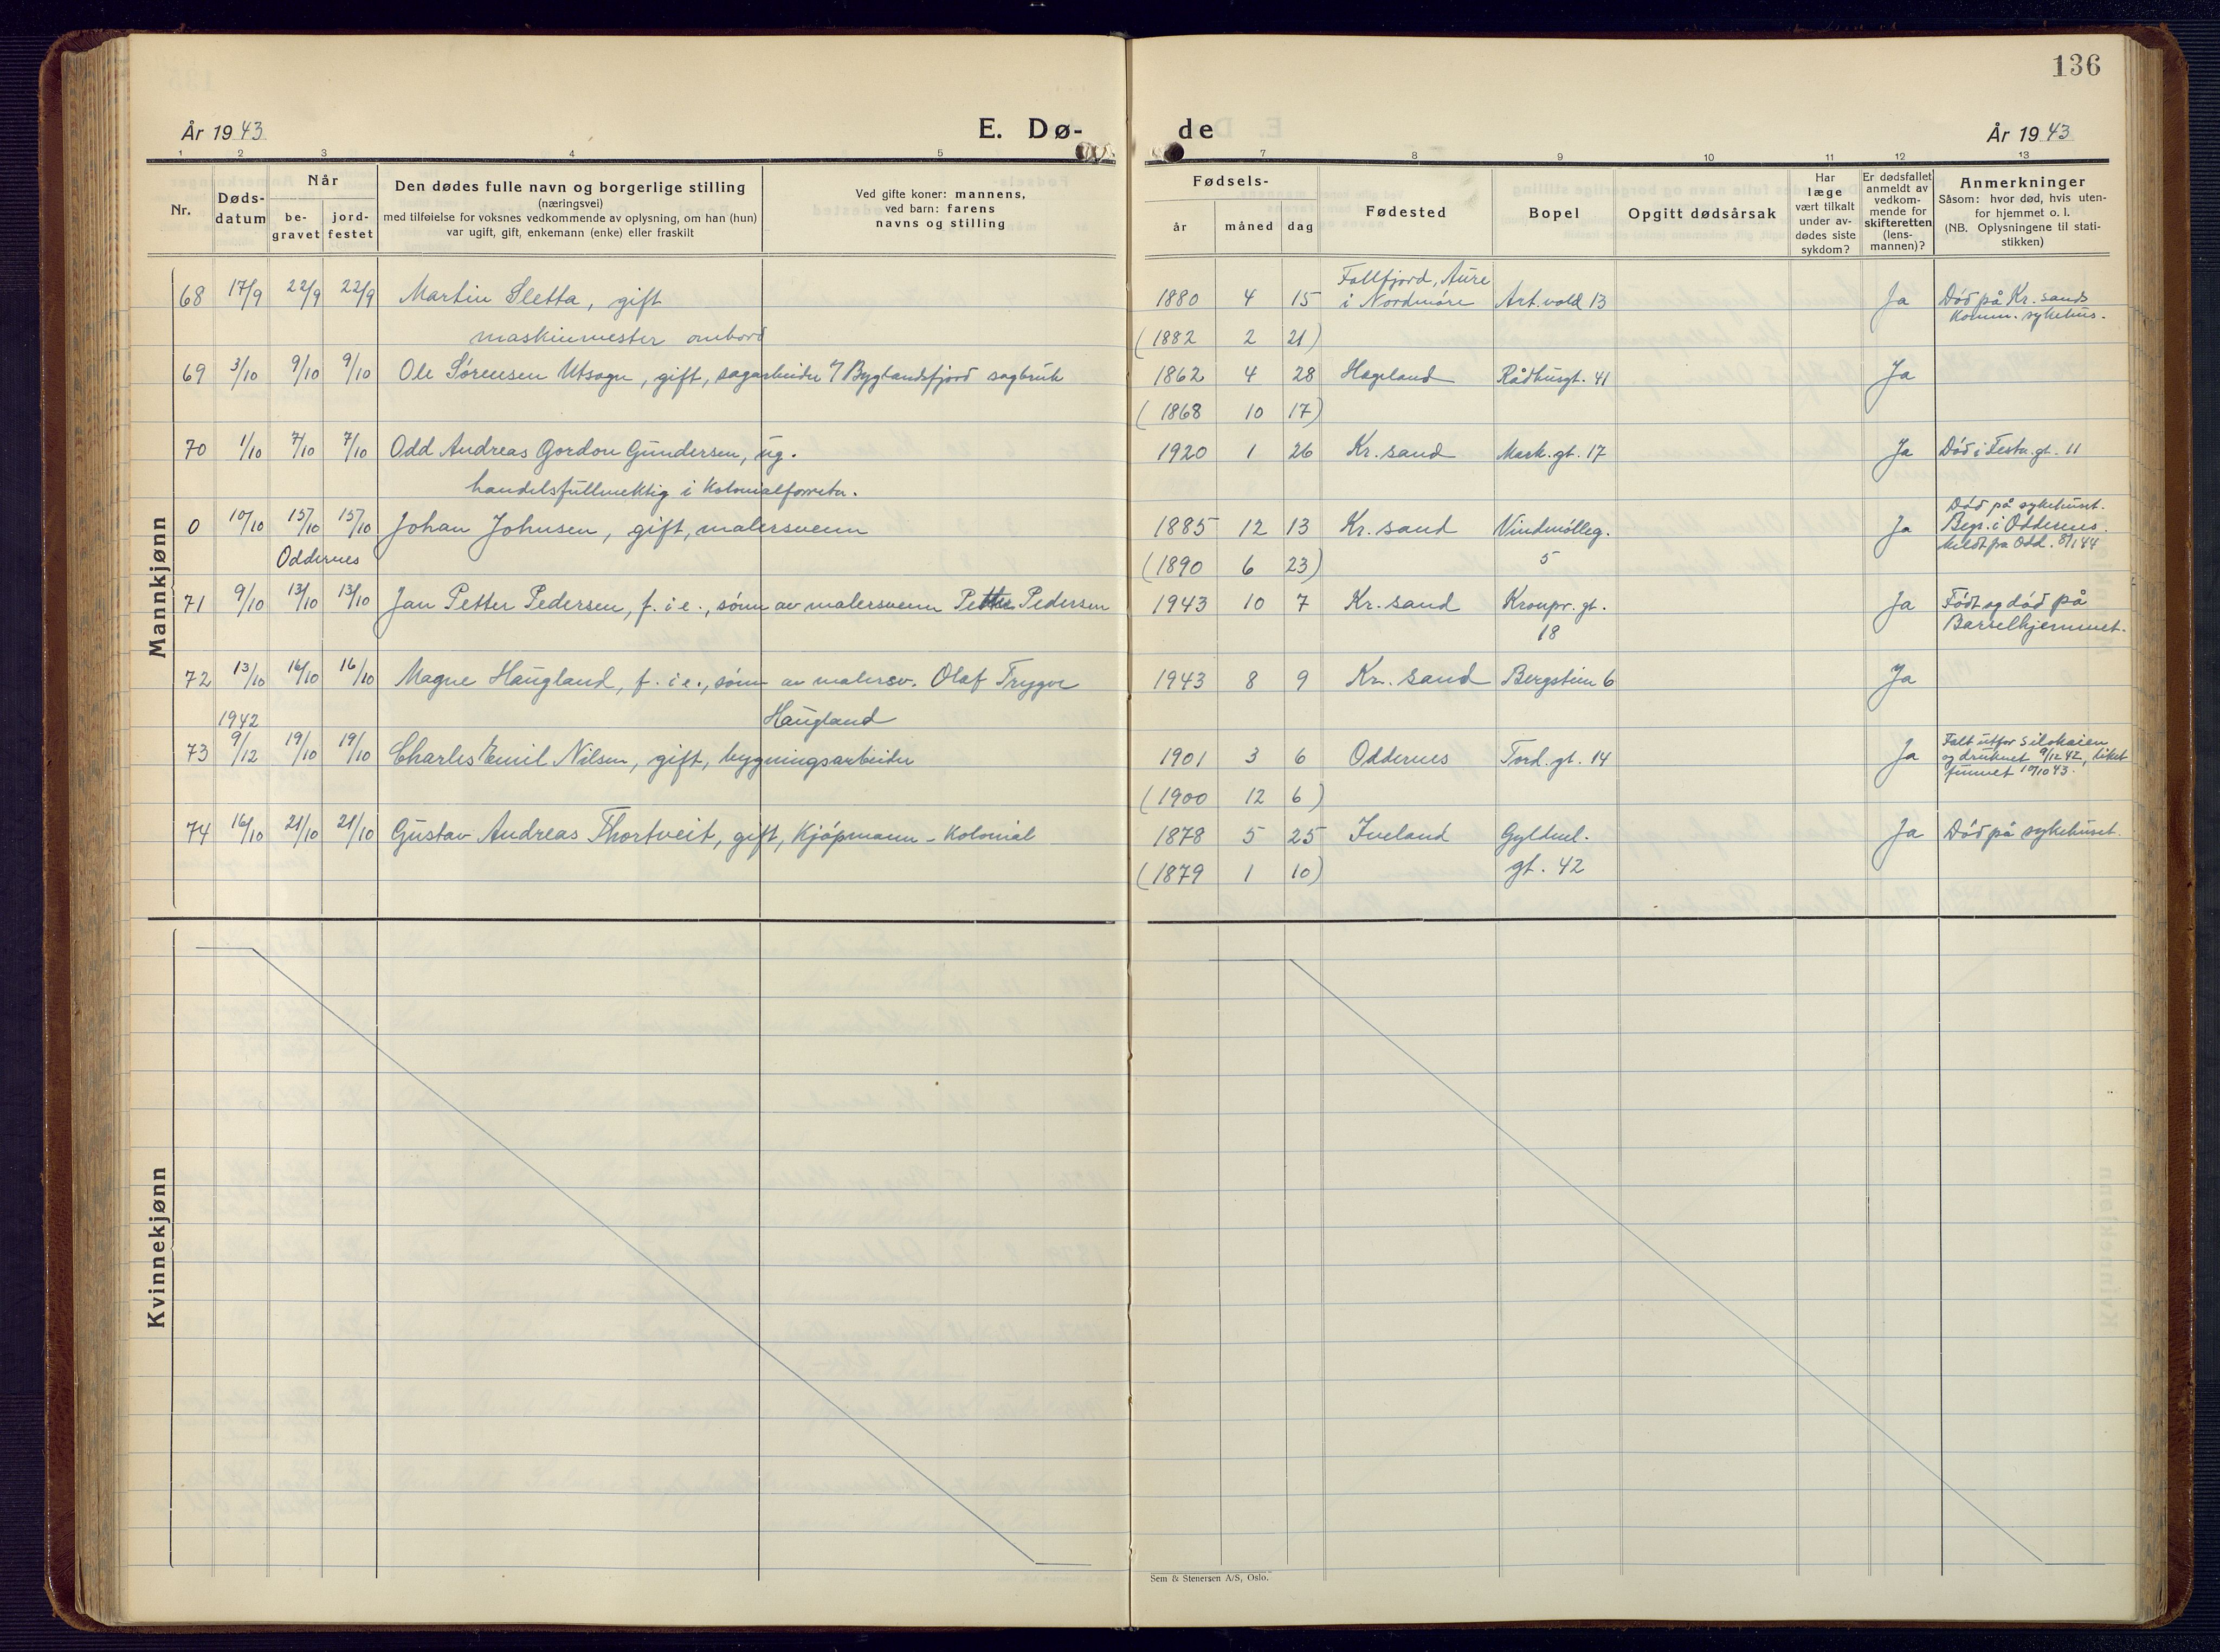 136
År 1943
E. Dø-
de
År 1943
1 2 3 4 5
7 8 9 10 11 12 13
Nr.
Døds-
datum
Når
be-
gravet
jord-
festet
Den dødes fulle navn og borgerlige stilling
(næringsvei)
med tilføielse for voksnes vedkommende av oplysning, om han (hun)
var ugift, gift, enkemann (enke) eller fraskilt
Ved gifte koner: mannens,
ved barn: farens
navns og stilling
Fødsels-
år
måned
dag
Fødested
Bopel
Opgitt dødsårsak
Har
læge
vært tilkalt
under av-
dødes siste
sykdom?
Er dødsfallet
anmeldt av
vedkom-
mende for
skifteretten
(lens-
mannen)?
Anmerkninger
Såsom: hvor død, hvis uten-
for hjemmet o. l.
(NB. Oplysningene til stati-
stikken)
Mannkjønn
68 17/9 22/9 22/9 Martin Sletta, gift
maskinmester ombord
1880 4 15 Follfjord, Aure
i Nordmøre
Art.vold 13 Ja Död på Kr. sands
Komm. sykehus.
(1882 2 21)
69 3/10 9/10 9/10 Ole Sørensen Utsogn, gift, sagarbeider v/ Byglandsfjord sagbruk
1862 4 28 Hægeland Rådhusgt. 41 Ja
(1868 10 17)
70 1/10 7/10 7/10 Odd Andreas Gordon Gundersen, ug.
handelsfullmektig i Kolonialforretn.
1920 1 26 Kr. sand Mark. gt. 17 Ja Död i Festn. gt. 11
0 10/10 15/10 15/10 Johan Johnsen, gift, malersvenn
Oddernes
1885 12 13 Kr. sand Vindmölleg.
5
Ja Död på sykehuset.
Begr. i Oddernes.
Meldt fra Odd. 8/1 44
(1890 6 23)
71 9/10 13/10 13/10 Jan Petter Pedersen, f. i e., sönn av malersvenn Petter Pedersen
1943 10 7 Kr. sand Kronpr. gt.
18
Ja Födt og död på
Barselhjemmet.
72 13/10 16/10 16/10 Magne Haugland, f. i e., sönn av malersv. Olaf Trygve
Haugland
1943 8 9 Kr. sand Bergstien 6 Ja
1942
73 9/12 19/10 19/10 Charles Emil Nilsen, gift, bygningsarbeider
1901 3 6 Oddernes Tord. gt. 14 Ja Falt utfor Silokaien
og druknet 9/12 42, liket
funnet 10/10 43.
(1900 12 6)
74 16/10 21/10 21/10 Gustav Andreas Thortveit, gift, Kjöpmann - Kolonial
1878 5 25 Iveland Gyldenl.
gt. 42
Ja Död på sykehuset.
(1879 1 10)
Kvinnekjønn
Sem & Stenersen A/S, Oslo.